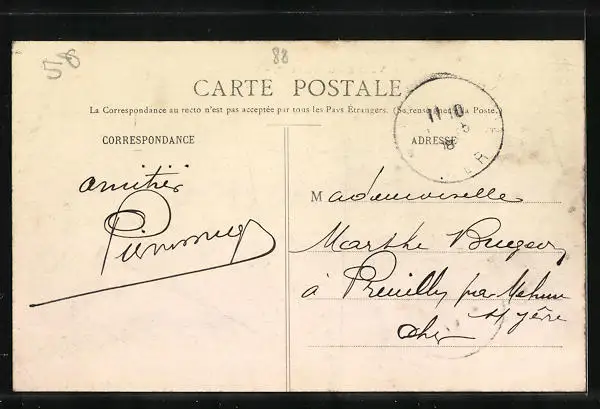 58
88
CARTE POSTALE
La Correspondance au recto n'est pas acceptée par tous les Pays Étrangers. (Se renseigner à la Poste.)
CORRESPONDANCE
ADRESSE
11 10
amitiés
Mademoiselle
Marthe
à Preuilly par Mehun
s/ Yèvre
Cher